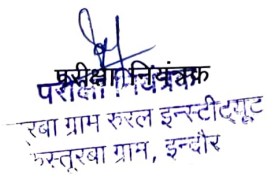 परीक्षा नियंत्रक
परीक्षा नियंत्रक
रबा ग्राम रुरल इन्स्टीट्यूट
कस्तूरबा ग्राम, इन्दौर